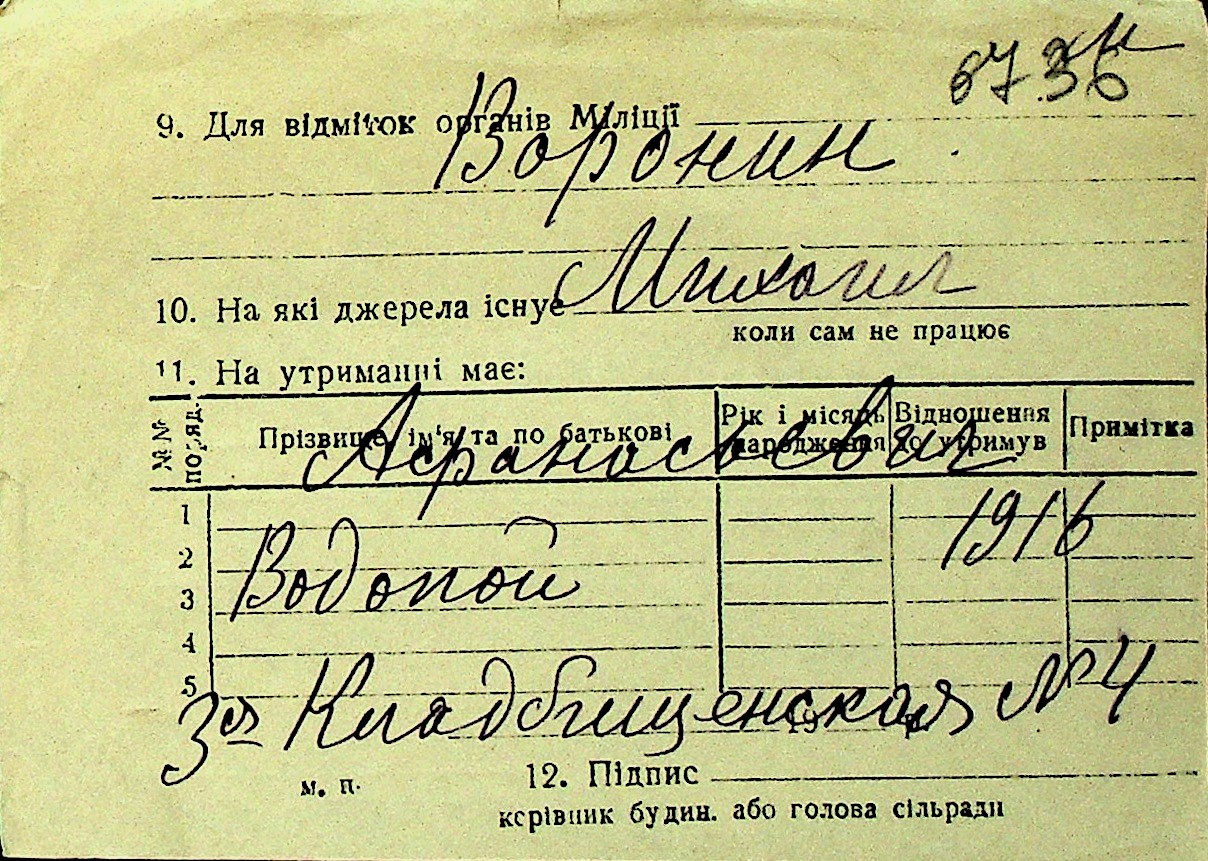 6736
9. Для відміток органів Міліції
Воронин
10. На які джерела існує Михаил
коли сам не працює
11. На утриманні має:
Афанасьевич
№№ по ряд. Прізвище, ім'я та по батькові Рік і місяць народження Відношення до утримув Примітка
1 1916
2 Водопой
3
4
5
3я Кладбищенская №4
19 р.
м. п. 12. Підпис
керівник будин. або голова сільради